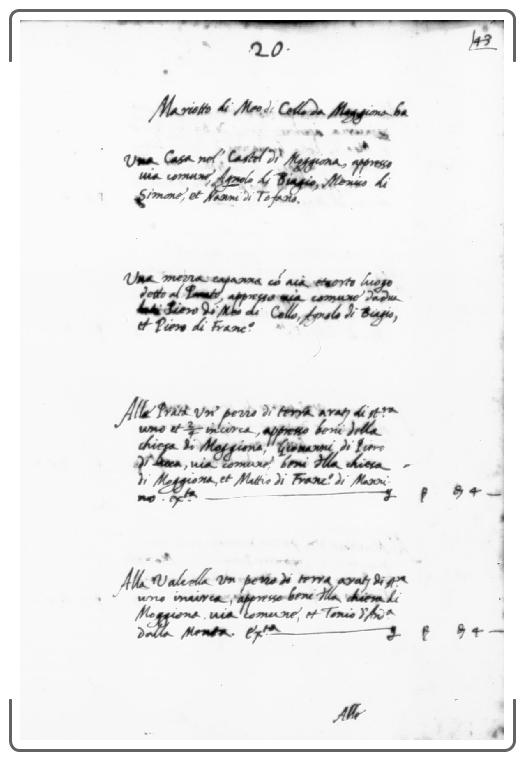 20.
43
Mariotto di Meo di Collo da Moggiona ha
Una Casa nel Castel di Moggiona, appresso
via comune, Agnolo di Biagio, Menico di
Simone, et Nanni di Tofano.
Una mezza capanna có aia et orto luogo
detto al Prato, appresso via comune da due
lati Piero di Meo di Collo, Agnolo di Biagio,
et Piero di Franc.º
Alla Prata Un pezzo di terra arat; di st.ra
uno et 2/3 incirca, appresso beni della
chiesa di Moggiona, Giovanni di Piero
di Luca, via comune, beni dlla chiesa
di Moggiona, et Mattio di Franc.º di Nanni
no. ex.ta 4
Alla Valcella Un pezzo di terra arat; di st.ra
uno incirca, appresso beni dlla chiesa di
Moggiona, via comune, et Tonio d'And.a
dalla Monta. ex.ta 4
Allo